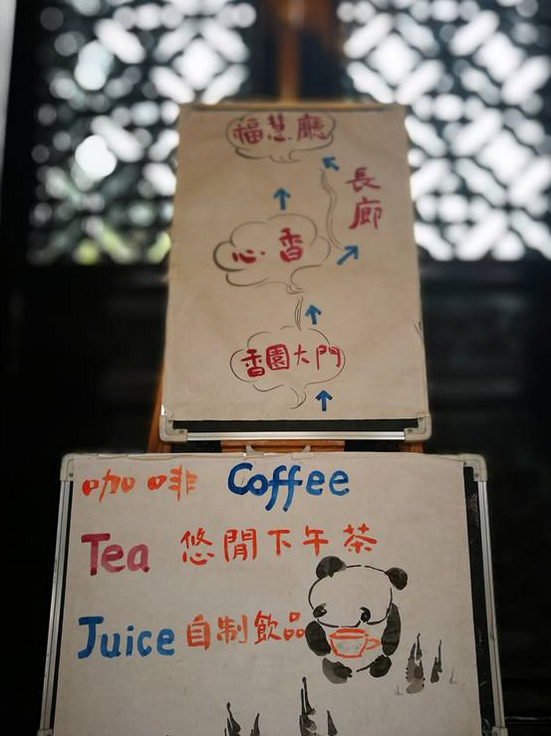 福慧廳
長廊
心香
香園大門
咖啡 Coffee
Tea 悠閒下午茶
Juice 自制飲品